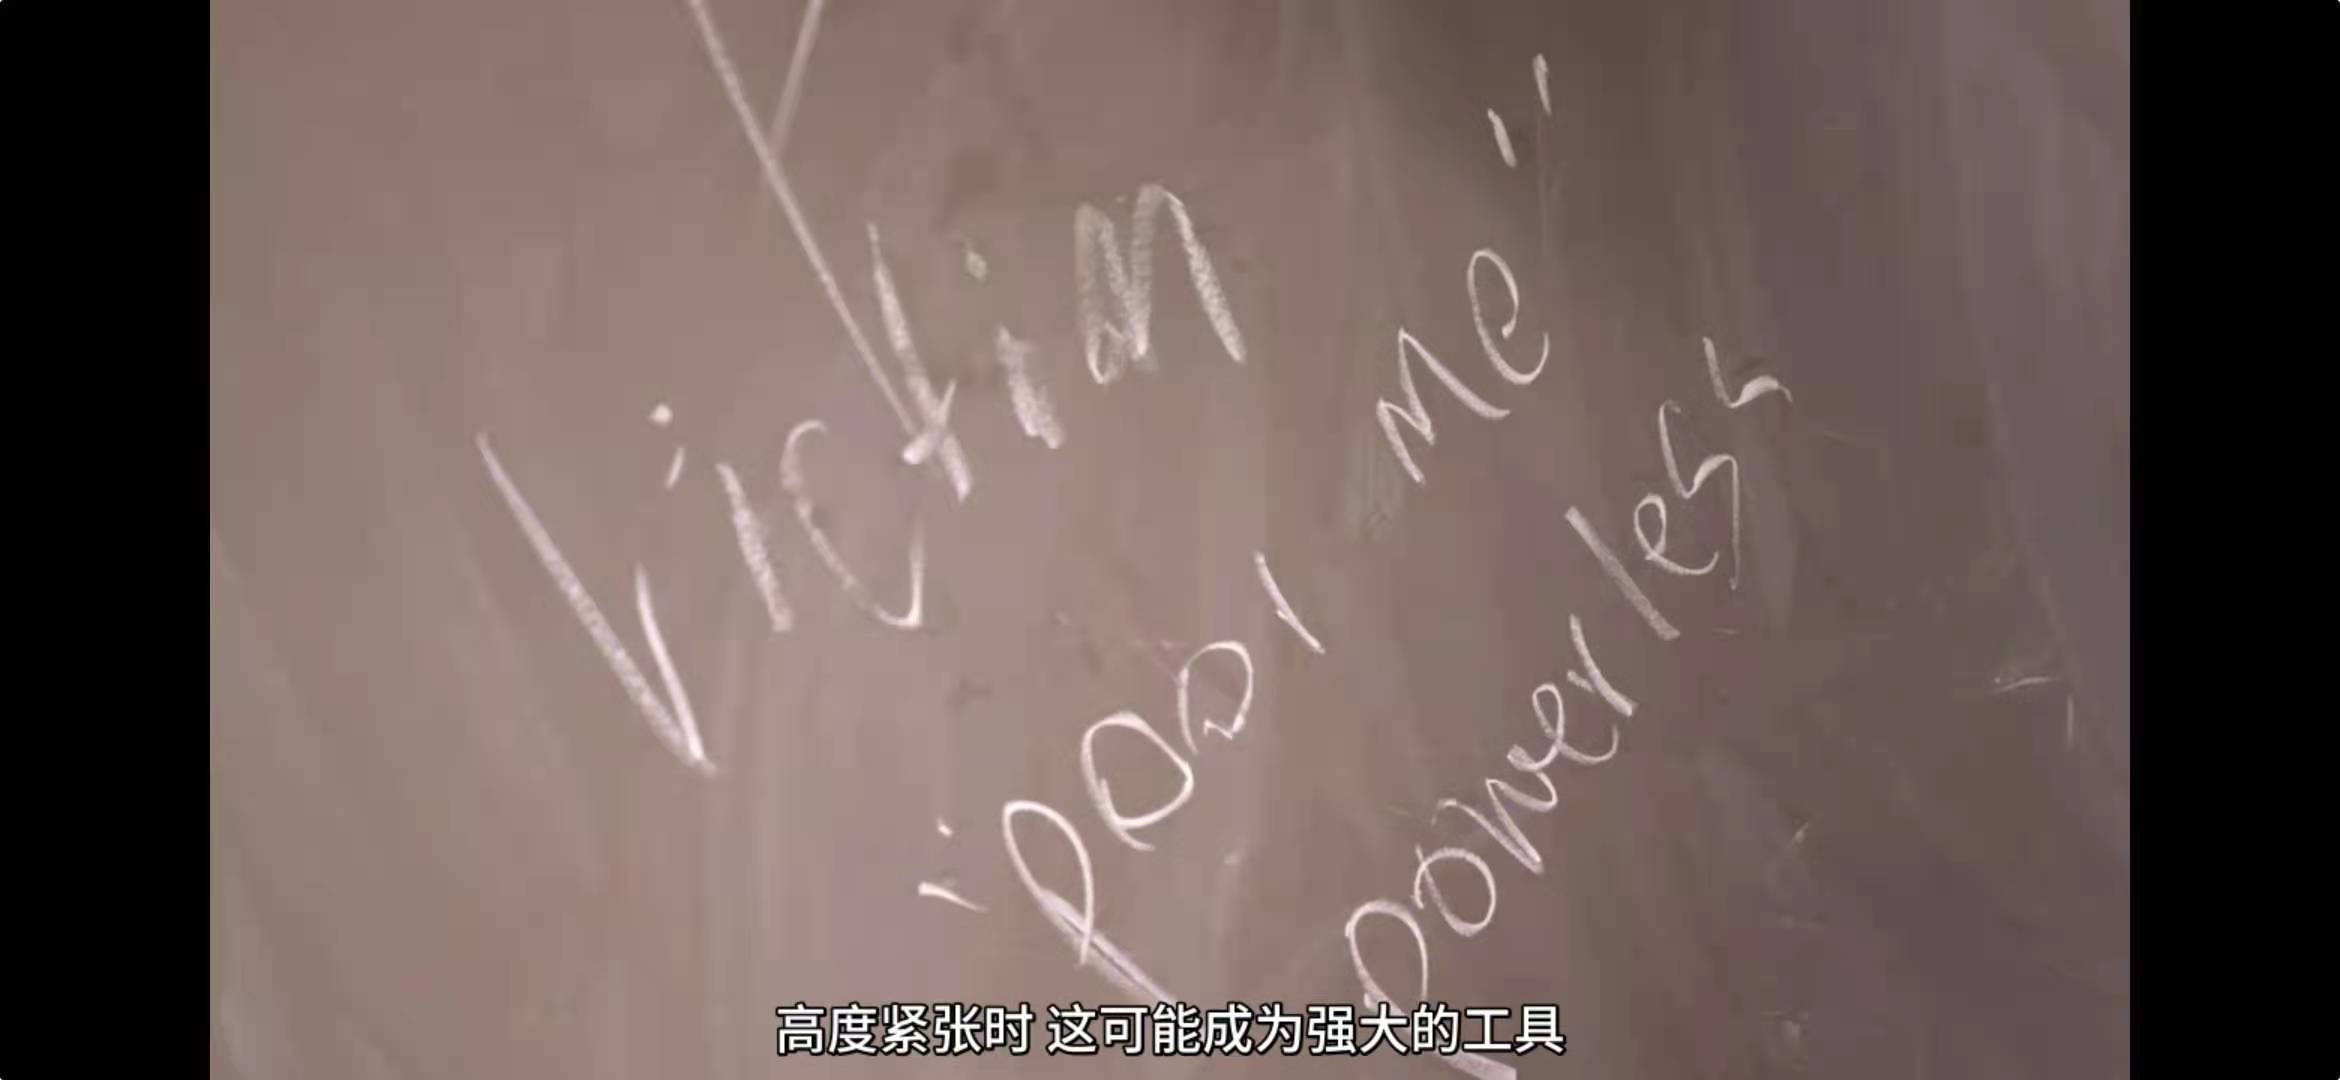 Victim
"poor me"
powerless
高度紧张时 这可能成为强大的工具